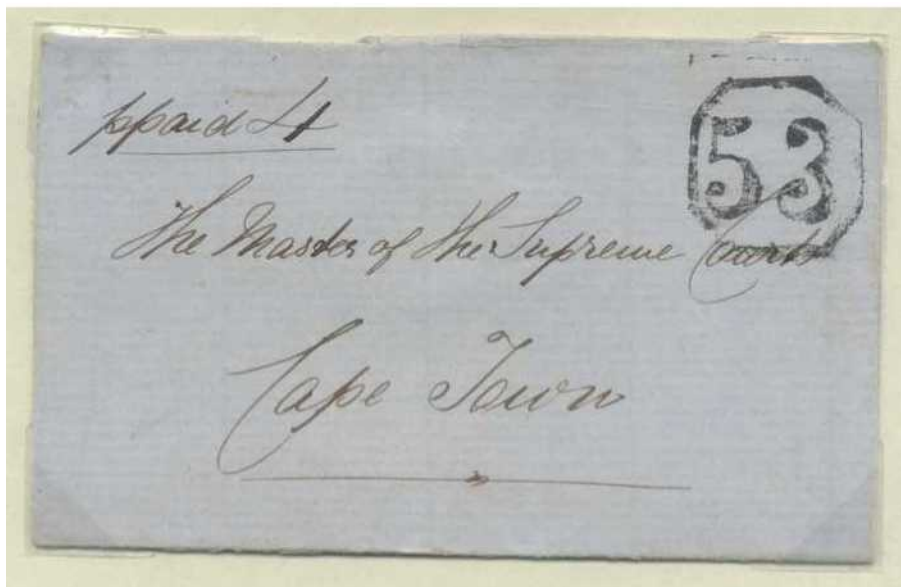 ppaid 4
53
The Master of the Supreme Court
Cape Town